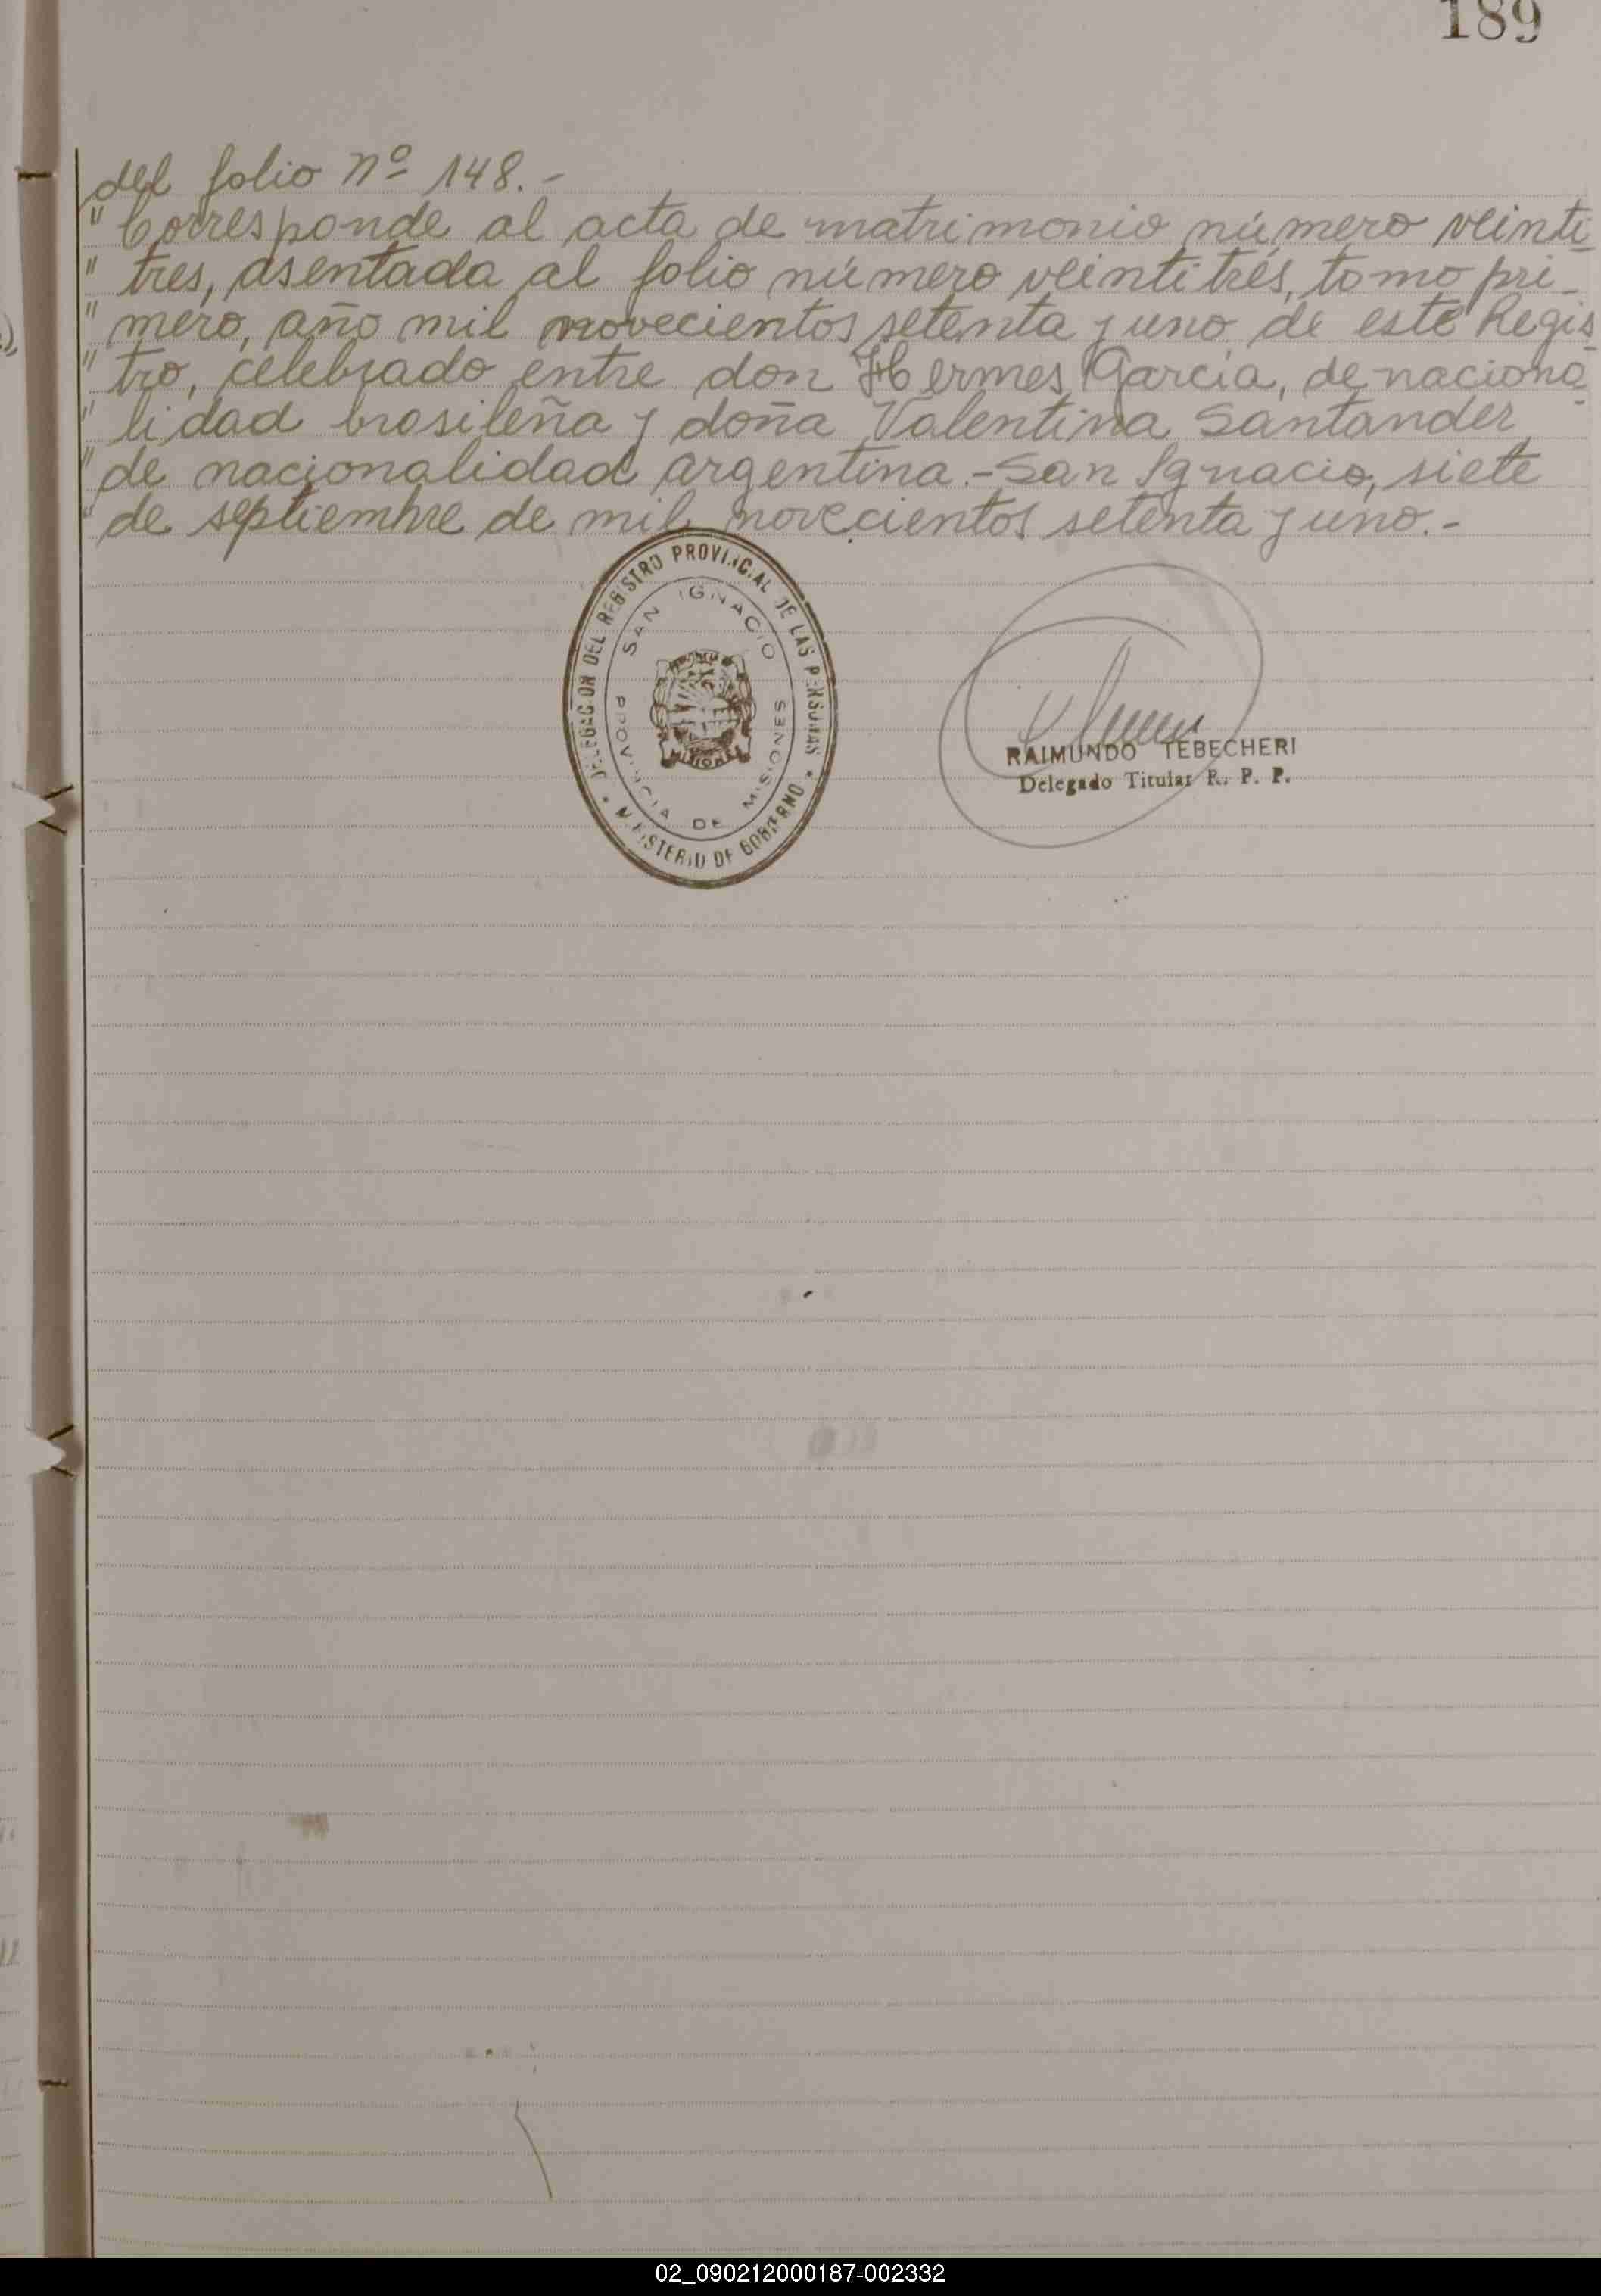 189
del folio nº 148.-
" Corresponde al acta de matrimonio número veinti-
" tres, asentada al folio número veintitrés, tomo pri-
" mero, año mil novecientos setenta y uno de este Regis
" tro, celebrado entre don Hermes García, de naciona-
" lidad brasileña y doña Valentina Santander
" de nacionalidad argentina.- San Ignacio, siete
" de septiembre de mil novecientos setenta y uno.-
DELEGACION DEL REGISTRO PROVINCIAL DE LAS PERSONAS
SAN IGNACIO
PROVINCIA DE MISIONES
MISIONES
MINISTERIO DE GOBIERNO
RAIMUNDO TEBECHERI
Delegado Titular R. P. P.
02_090212000187-002332